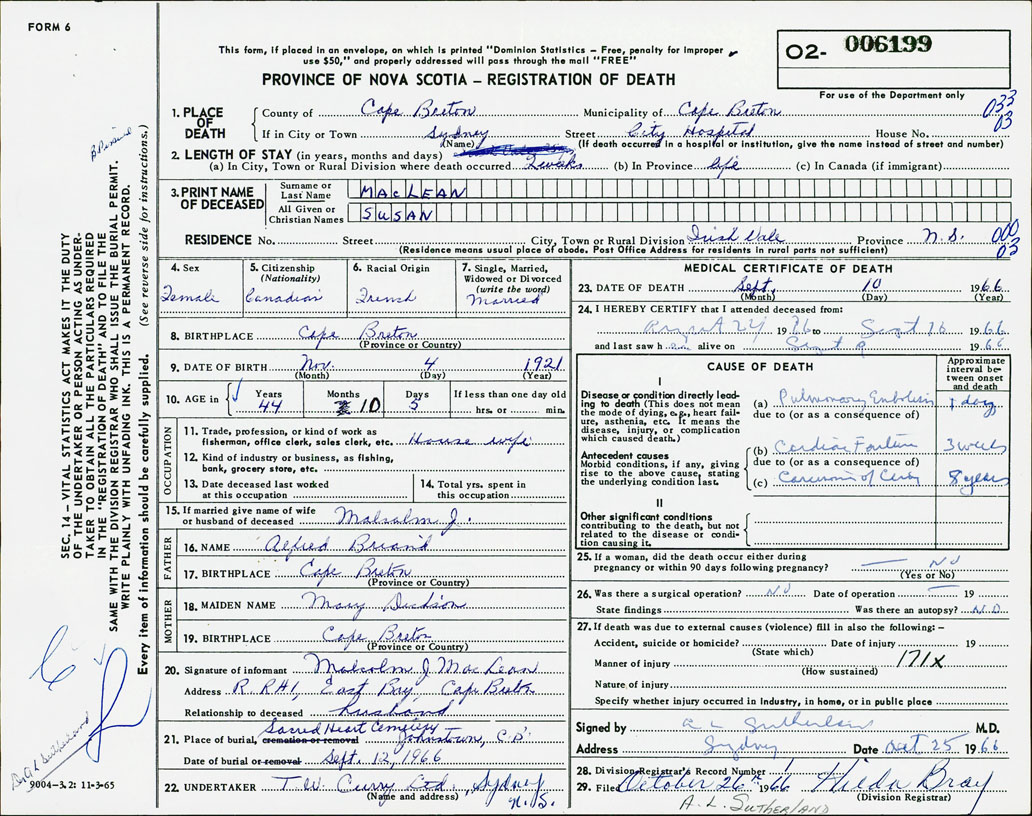 FORM 6
This form, if placed in an envelope, on which is printed "Dominion Statistics – Free, penalty for improper
use $50," and properly addressed will pass through the mail "FREE"
O2- 006199
For use of the Department only
PROVINCE OF NOVA SCOTIA – REGISTRATION OF DEATH
033
03
1. PLACE OF DEATH
County of Cape Breton Municipality of Cape Breton
If in City or Town Sydney Street City Hospital House No.
(Name) (If death occurred in a hospital or institution, give the name instead of street and number)
2. LENGTH OF STAY (in years, months and days)
(a) In City, Town or Rural Division where death occurred 2 weeks (b) In Province life (c) In Canada (if immigrant)
3. PRINT NAME OF DECEASED
Surname or Last Name MACLEAN
All Given or Christian Names SUSAN
RESIDENCE No. Street City, Town or Rural Division Irish Vale Province N.S.
000
03
(Residence means usual place of abode. Post Office Address for residents in rural parts not sufficient)
4. Sex
Female
5. Citizenship
(Nationality)
Canadian
6. Racial Origin
French
7. Single, Married,
Widowed or Divorced
(write the word)
Married
8. BIRTHPLACE Cape Breton
(Province or Country)
9. DATE OF BIRTH Nov. 4 1921
(Month) (Day) (Year)
10. AGE in Years Months Days If less than one day old
44 10 5 hrs. or min.
OCCUPATION
11. Trade, profession, or kind of work as
fisherman, office clerk, sales clerk, etc. House wife
12. Kind of industry or business, as fishing,
bank, grocery store, etc.
13. Date deceased last worked
at this occupation
14. Total yrs. spent in
this occupation
15. If married give name of wife
or husband of deceased Malcolm J.
FATHER
16. NAME Alfred Briand
17. BIRTHPLACE Cape Breton
(Province or Country)
MOTHER
18. MAIDEN NAME Mary
19. BIRTHPLACE Cape Breton
(Province or Country)
20. Signature of informant Malcolm J MacLean
Address R.R#1, East Bay, Cape Breton
Relationship to deceased husband
21. Place of burial, cremation or removal Sacred Heart Cemetery
Johnstown, C.B.
Date of burial or removal Sept. 12, 1966
22. UNDERTAKER T.W. Curry Ltd., Sydney
(Name and address) N.S.
MEDICAL CERTIFICATE OF DEATH
23. DATE OF DEATH Sept. 10 1966
(Month) (Day) (Year)
24. I HEREBY CERTIFY that I attended deceased from:
August 24 19 to Sept 1966
and last saw h alive on Sept 9 1966
CAUSE OF DEATH
Approximate
interval be-
tween onset
and death
I
Disease or condition directly lead-
ing to death (This does not mean
the mode of dying, e.g., heart fail-
ure, asthenia, etc. It means the
disease, injury, or complication
which caused death.)
(a) Pulmonary Embolism 1 day
due to (or as a consequence of)
Antecedent causes
Morbid conditions, if any, giving
rise to the above cause, stating
the underlying condition last.
(b) Cardiac Failure 3 weeks
due to (or as a consequence of)
(c) Carcinoma of Cervix 8 years
II
Other significant conditions
contributing to the death, but not
related to the disease or condi-
tion causing it.
25. If a woman, did the death occur either during
pregnancy or within 90 days following pregnancy? No
(Yes or No)
26. Was there a surgical operation? NO Date of operation — 19
State findings Was there an autopsy? NO
27. If death was due to external causes (violence) fill in also the following:–
Accident, suicide or homicide? Date of injury 19
(State which)
Manner of injury 171X
(How sustained)
Nature of injury
Specify whether injury occurred in Industry, in home, or in public place
Signed by A L Sutherland M.D.
Address Sydney Date Oct 25 1966
28. Division Registrar's Record Number
29. Filed October 26th 1966 Hilda Bray
(Division Registrar)
A. L. SUTHERLAND
SEC. 14 – VITAL STATISTICS ACT MAKES IT THE DUTY
OF THE UNDERTAKER OR PERSON ACTING AS UNDER-
TAKER TO OBTAIN ALL THE PARTICULARS REQUIRED
IN THE "REGISTRATION OF DEATH" AND TO FILE THE
SAME WITH THE DIVISION REGISTRAR WHO SHALL ISSUE THE BURIAL PERMIT.
WRITE PLAINLY WITH UNFADING INK. THIS IS A PERMANENT RECORD.
Every item of information should be carefully supplied. (See reverse side for instructions.)
Dr A L Sutherland
9004-3.2: 11-3-65